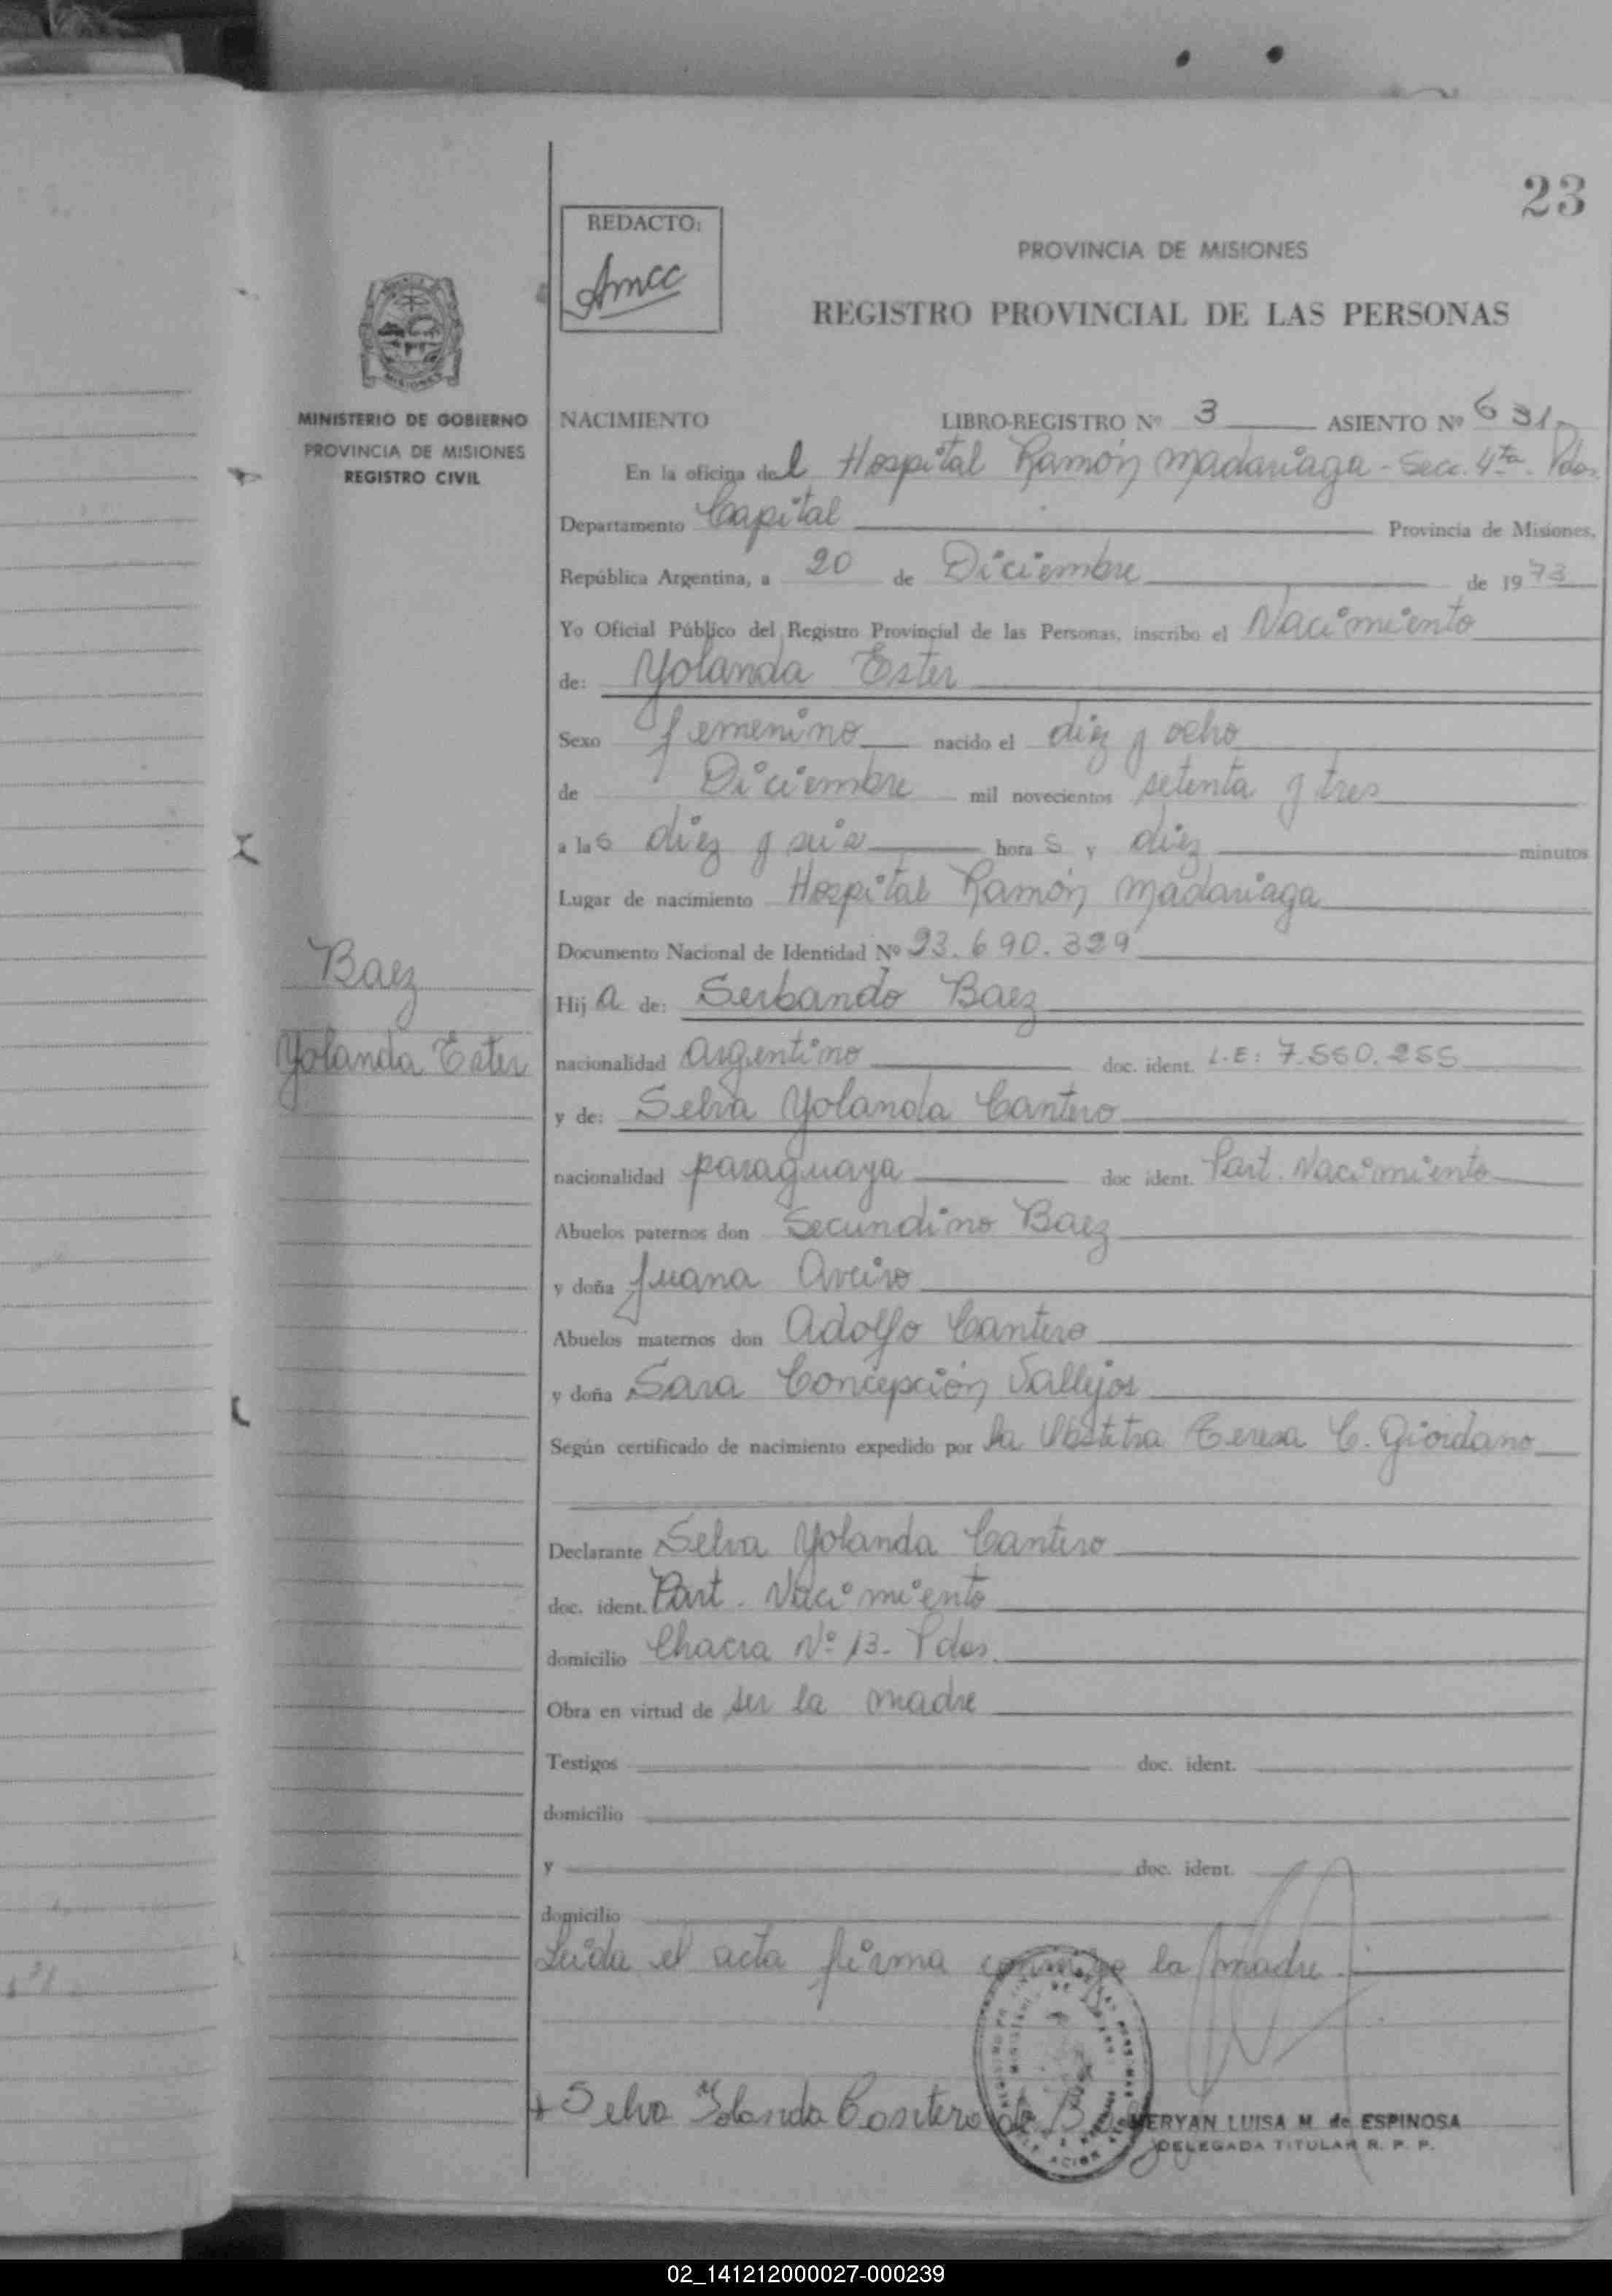 23
REDACTO:
Amcc
PROVINCIA DE MISIONES
REGISTRO PROVINCIAL DE LAS PERSONAS
MISIONES
MINISTERIO DE GOBIERNO
PROVINCIA DE MISIONES
REGISTRO CIVIL
NACIMIENTO LIBRO-REGISTRO Nº 3 ASIENTO Nº 631
En la oficina del Hospital Ramón Madariaga - Secc. 4ta. Pdas.
Departamento Capital Provincia de Misiones.
República Argentina, a 20 de Diciembre de 1973
Yo Oficial Público del Registro Provincial de las Personas, inscribo el Nacimiento
de: Yolanda Ester
Sexo femenino nacido el diez y ocho
de Diciembre mil novecientos setenta y tres
a las diez y seis horas y diez minutos
Lugar de nacimiento Hospital Ramón Madariaga
Documento Nacional de Identidad Nº 23.690.329
Baez
Yolanda Ester
Hija de: Serbando Baez
nacionalidad argentino doc. ident. L.E: 7.550.255
y de: Selva Yolanda Cantero
nacionalidad paraguaya doc ident. Part. Nacimiento
Abuelos paternos don Secundino Baez
y doña Juana Aveiro
Abuelos maternos don Adolfo Cantero
y doña Sara Concepción Vallejos
Según certificado de nacimiento expedido por la Obstetra Teresa C. Giordano
Declarante Selva Yolanda Cantero
doc. ident. Part. Nacimiento
domicilio Chacra Nº 13 - Pdas.
Obra en virtud de ser la madre
Testigos doc. ident.
domicilio
y doc. ident.
domicilio
Leída el acta firma conmigo la madre.
+ Selva Yolanda Cantero de
MERYAN LUISA M. de ESPINOSA
DELEGADA TITULAR R. P. P.
02_141212000027-000239